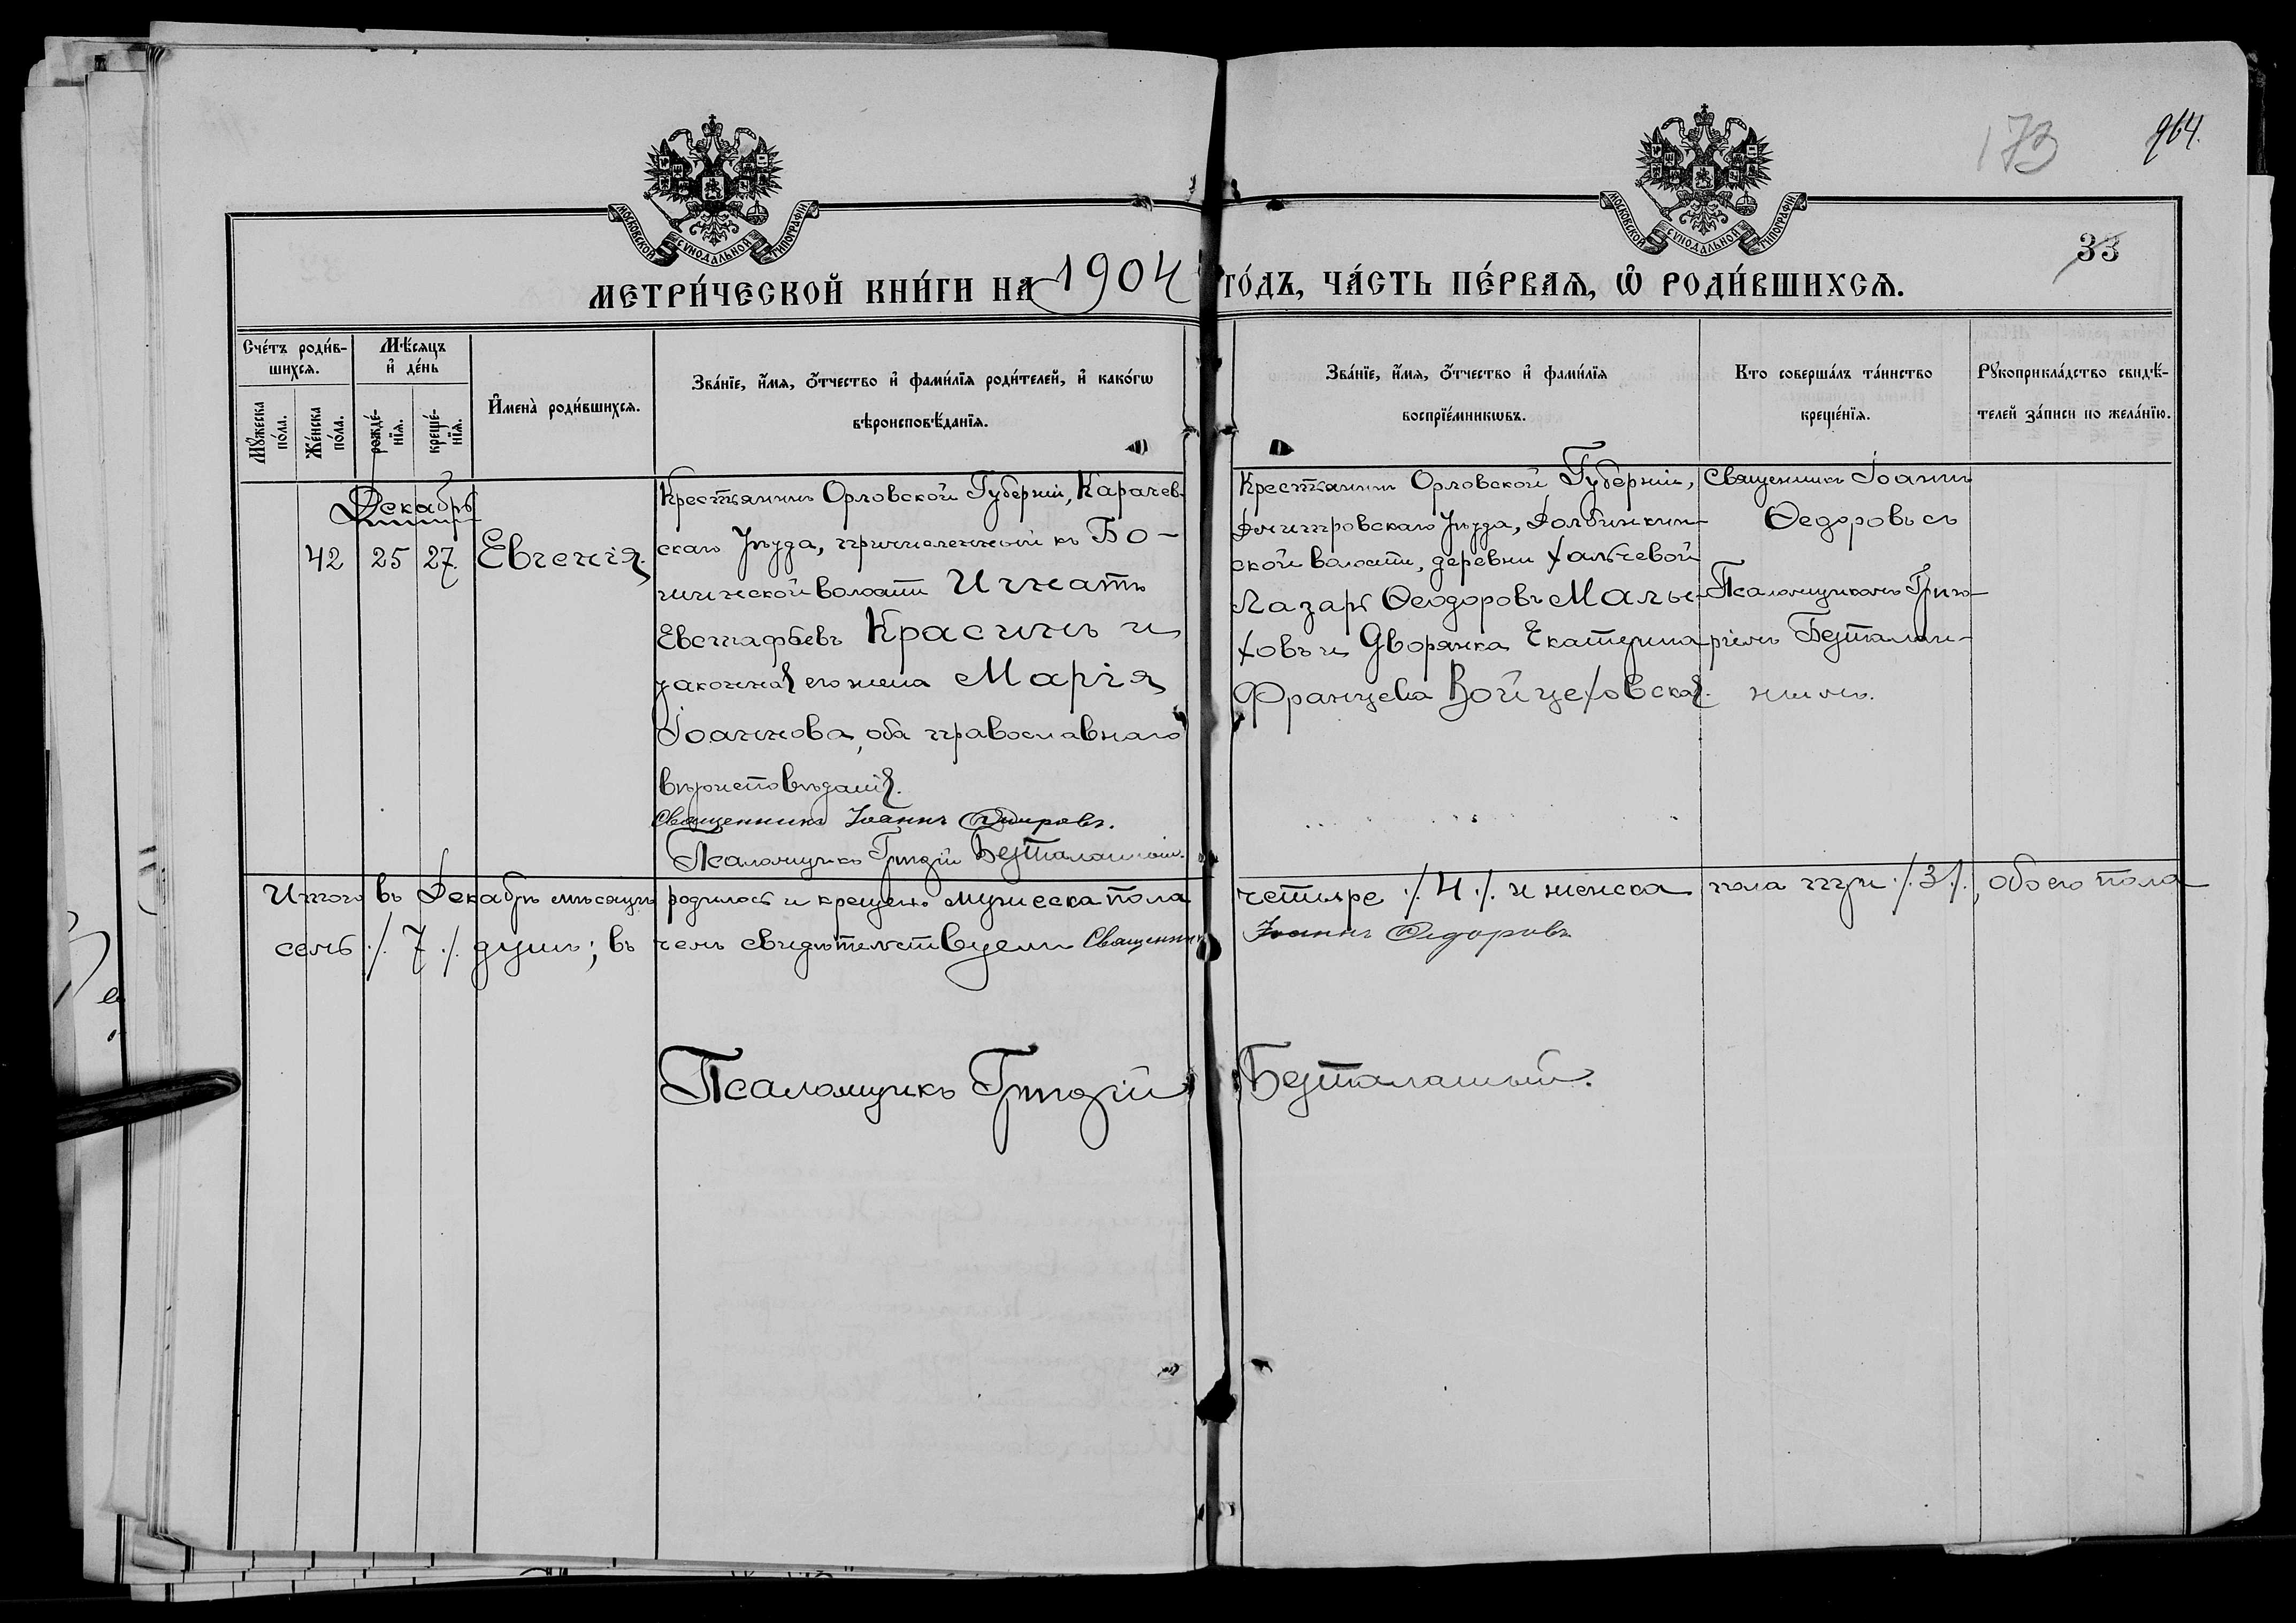 173
964.
МОСКОВСКОЙ СѴНОДАЛЬНОЙ ТИПОГРАФІИ
МОСКОВСКОЙ СѴНОДАЛЬНОЙ ТИПОГРАФІИ
33
МЕТРИ́ЧЕСКОЙ КНИ́ГИ НА 1904 ГО́ДЪ, ЧА́СТЬ ПЕ́РВАЯ, Ѡ҆ РОДИ́ВШИХСЯ.
Сче́тъ роди́в-
шихся.
Мꙋ́жеска по́ла.
Же́нска по́ла.
Мѣ́сяцъ
и҆ де́нь
рожде́-
нїя.
креще́-
нїя.
И҆мена̀ роди́вшихся.
Зва́нїе, и҆́мя, ѻ҆́тчество и҆ фами́лїя роди́телей, и҆ како́гѡ
вѣроисповѣ́данїя.
Зва́нїе, и҆́мя, ѻ҆́тчество и҆ фами́лїя
воспрїе́мникѡвъ.
Кто соверша́лъ та́инство
креще́нїя.
Рꙋкоприкла́дство свидѣ́-
телей за́писи по жела́нїю.
Декабрь
42 25 27. Евгенія.
Крестьянинъ Орловской Губерніи, Карачев-
скаго Уѣзда, причисленный къ Бо-
шинской волости Игнатъ
Евстафьевъ Красинъ и
законная его жена Марія
Іоаннова, оба православнаго
вѣроисповѣданія.
Священникъ Іоаннъ Ѳедоровъ.
Псаломщикъ Григорій Безталанный.
Крестьянинъ Орловской Губерніи,
Дмитровскаго Уѣзда, Долбинкин-
ской волости, деревни Хальчевой
Лазарь Ѳеодоровъ Малы-
ховъ и Дворянка Екатерина
Францева Войцеховская.
Священникъ Іоаннъ
Ѳедоровъ съ
Псаломщикомъ Григо-
ріемъ Безталан-
нымъ.
Итого въ Декабрѣ мѣсяцѣ родилось и крещено мужеска пола четыре ./. 4 ./. и женска пола три ./. 3 ./., обоего пола
семь ./. 7 ./. душъ; въ чемъ свидѣтельствуемъ Священникъ Іоаннъ Ѳедоровъ
Псаломщикъ Григорій Безталанный.